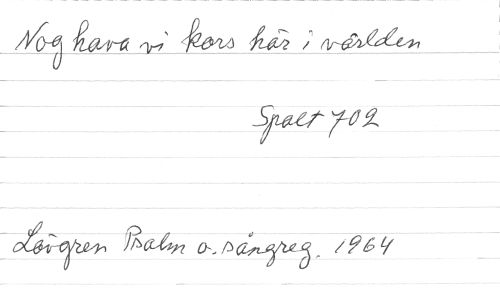 Nog hava vi kors här i världen
Spalt 702
Lövgren Psalm o. sångreg. 1964